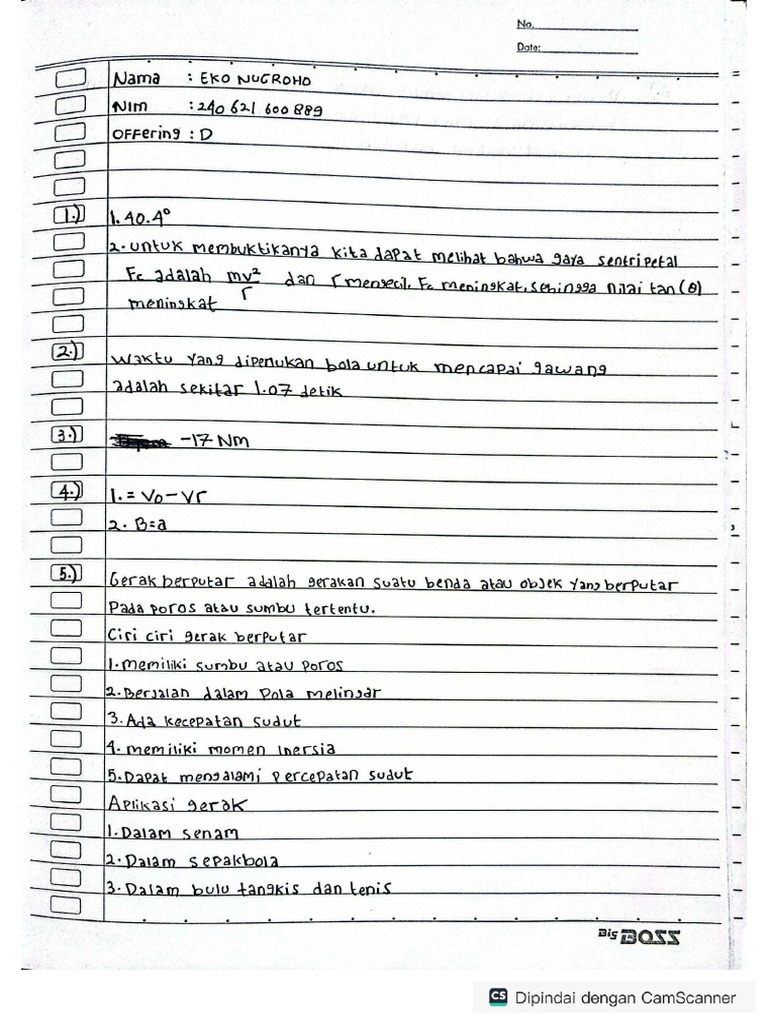 No.
Date:
Nama : EKO NUGROHO
NIM : 240 621 600 889
OFFering : D
1.) 1. 40.4°
2. untuk membuktikanya kita dapat melihat bahwa gaya sentripetal
Fc adalah mv²/r dan r mengecil, Fc meningkat, sehingga nilai tan (θ)
meningkat
2.) waktu yang diperlukan bola untuk mencapai gawang
adalah sekitar 1.07 detik
3.) -17 Nm
4.) 1. = Vo - Vr
2. B=a
5.) Gerak berputar adalah gerakan suatu benda atau objek yang berputar
Pada poros atau sumbu tertentu.
Ciri ciri gerak berputar
1. memiliki sumbu atau poros
2. Berjalan dalam Pola melingar
3. Ada kecepatan sudut
4. memiliki momen inersia
5. Dapat mengalami percepatan sudut
Aplikasi gerak
1. Dalam senam
2. Dalam sepakbola
3. Dalam bulu tangkis dan tenis
Big BOSS
CS Dipindai dengan CamScanner